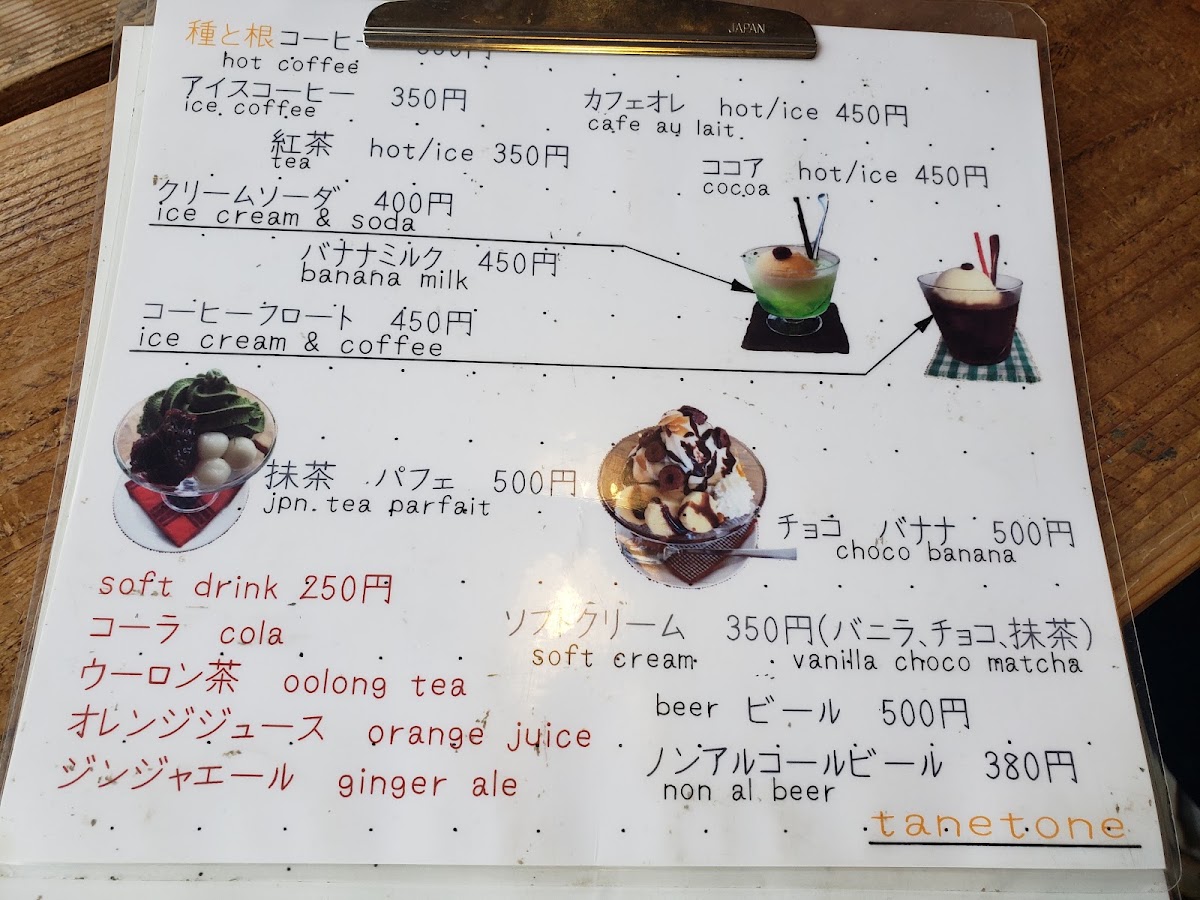 JAPAN
種と根コーヒー
hot coffee
アイスコーヒー 350円
ice coffee
カフェオレ hot/ice 450円
cafe au lait
紅茶 hot/ice 350円
tea
ココア hot/ice 450円
cocoa
クリームソーダ 400円
ice cream & soda
バナナミルク 450円
banana milk
コーヒーフロート 450円
ice cream & coffee
抹茶 パフェ 500円
jpn.tea parfait
チョコ バナナ 500円
choco banana
soft drink 250円
コーラ cola
ウーロン茶 oolong tea
オレンジジュース orange juice
ジンジャエール ginger ale
ソフトクリーム 350円(バニラ、チョコ、抹茶)
soft cream vanilla choco matcha
beer ビール 500円
ノンアルコールビール 380円
non al beer
tanetone